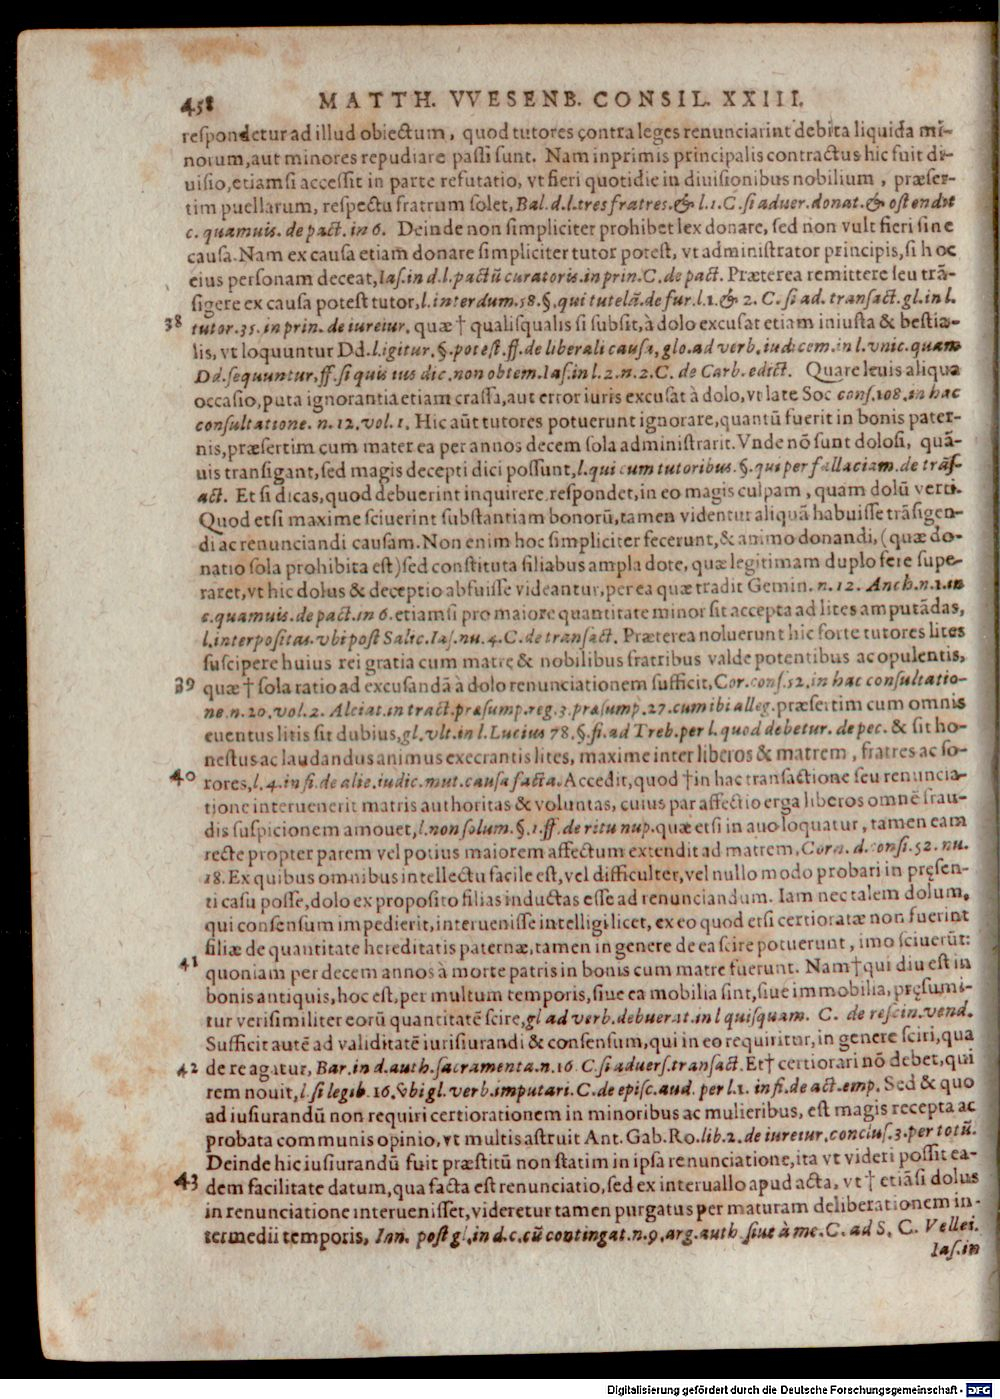 458 MATTH. VVESENB. CONSIL. XXIII.
respondetur ad illud obiectum, quod tutores contra leges renunciarint debita liquida mi-
norum, aut minores repudiare passi sunt. Nam inprimis principalis contractus hic fuit di-
uisio, etiamsi accessit in parte refutatio, vt fieri quotidie in diuisionibus nobilium, præser-
tim puellarum, respectu fratrum solet, Bal. d. l. tres fratres. & l. 1. C. si aduer. donat. & ostendit
c. quamuis. de pact. in 6. Deinde non simpliciter prohibet lex donare, sed non vult fieri sine
causa. Nam ex causa etiam donare simpliciter tutor potest, vt administrator principis, si hoc
eius personam deceat, Ias. in d. l. pactū curatoris. in prin. C. de pact. Præterea remittere seu trā-
sigere ex causa potest tutor, l. interdum. 58. §. qui tutelā. de fur. l. 1. & 2. C. si ad. transact. gl. in l.
38 tutor. 35. in prin. de iureiur. quæ † qualisqualis si subsit, à dolo excusat etiam iniusta & bestia-
lis, vt loquuntur Dd. l. igitur. §. potest. ff. de liberali causa, glo. ad verb. iudicem. in l. vnic. quam
Dd. sequuntur, ff. si quis ius dic. non obtem. Ias. in l. 2. n. 2. C. de Carb. edict. Quare leuis aliqua
occasio, puta ignorantia etiam crassa, aut error iuris excusat à dolo, vt late Soc cons. 108. in hac
consultatione. n. 12. vol. 1. Hic aūt tutores potuerunt ignorare, quantū fuerit in bonis pater-
nis, præsertim cum mater ea per annos decem sola administrarit. Vnde nō sunt dolosi, quā-
uis transigant, sed magis decepti dici possunt, l. qui cum tutoribus. §. qui per fallaciam. de trās-
act. Et si dicas, quod debuerint inquirere, respondet, in eo magis culpam, quam dolū verti.
Quod etsi maxime sciuerint substantiam bonorū, tamen videntur aliquā habuisse trāsigen-
di ac renunciandi causam. Non enim hoc simpliciter fecerunt, & animo donandi, (quæ do-
natio sola prohibita est) sed constituta filiabus ampla dote, quæ legitimam duplo fere supe-
raret, vt hic dolus & deceptio abfuisse videantur, per ea quæ tradit Gemin. n. 12. Anch. n. 1. in
c. quamuis. de pact. in 6. etiamsi pro maiore quantitate minor sit accepta ad lites amputādas,
l. interpositas. vbi post Salic. Ias. nu. 4. C. de transact. Præterea noluerunt hic forte tutores lites
suscipere huius rei gratia cum matre & nobilibus fratribus valde potentibus ac opulentis,
39 quæ † sola ratio ad excusandā à dolo renunciationem sufficit, Cor. cons. 52. in hac consultatio-
ne. n. 20. vol. 2. Alciat. in tract. præsump. reg. 3. præsump. 27. cum ibi alleg. præsertim cum omnis
euentus litis sit dubius, gl. vlt. in l. Lucius 78. §. fi. ad Treb. per l. quod debetur. de pec. & sit ho-
nestus ac laudandus animus execrantis lites, maxime inter liberos & matrem, fratres ac so-
40 rores, l. 4. in fi. de alie. iudic. mut. causa facta. Accedit, quod † in hac transactione seu renuncia-
tione interuenerit matris authoritas & voluntas, cuius par affectio erga liberos omnē frau-
dis suspicionem amouet, l. non solum. §. 1. ff. de ritu nup. quæ etsi in auo loquatur, tamen eam
recte propter parem vel potius maiorem affectum extendit ad matrem, Corn. d. consi. 52. nu.
18. Ex quibus omnibus intellectu facile est, vel difficulter, vel nullo modo probari in pręsen-
ti casu posse, dolo ex proposito filias inductas esse ad renunciandum. Iam nec talem dolum,
qui consensum impedierit, interuenisse intelligi licet, ex eo quod etsi certioratæ non fuerint
filiæ de quantitate hereditatis paternæ, tamen in genere de ea scire potuerunt, imo sciuerūt:
41 quoniam per decem annos à morte patris in bonis cum matre fuerunt. Nam † qui diu est in
bonis antiquis, hoc est, per multum temporis, siue ea mobilia sint, siue immobilia, pręsumi-
tur verisimiliter eorū quantitatē scire, gl ad verb. debuerat. in l quisquam. C. de rescin. vend.
Sufficit autē ad validitatē iurisiurandi & consensum, qui in eo requiritur, in genere sciri, qua
42 de re agitur, Bar. in d. auth. sacramenta. n. 16. C. si aduers. transact. Et † certiorari nō debet, qui
rem nouit, l. si legib. 16. vbi gl. verb. imputari. C. de episc. aud. per l. 1. in fi. de act. emp. Sed & quo
ad iusiurandū non requiri certiorationem in minoribus ac mulieribus, est magis recepta ac
probata communis opinio, vt multis astruit Ant. Gab. Ro. lib. 2. de iuretur. conclus. 3. per totū.
Deinde hic iusiurandū fuit præstitū non statim in ipsa renunciatione, ita vt videri possit ea-
43 dem facilitate datum, qua facta est renunciatio, sed ex interuallo apud acta, vt † etiāsi dolus
in renunciatione interuenisset, videretur tamen purgatus per maturam deliberationem in-
termedii temporis, Ian. post gl. in d. c. cū contingat. n. 9. arg. auth. siue à me. C. ad S. C. Vellei.
Ias. in
Digitalisierung gefördert durch die Deutsche Forschungsgemeinschaft - DFG